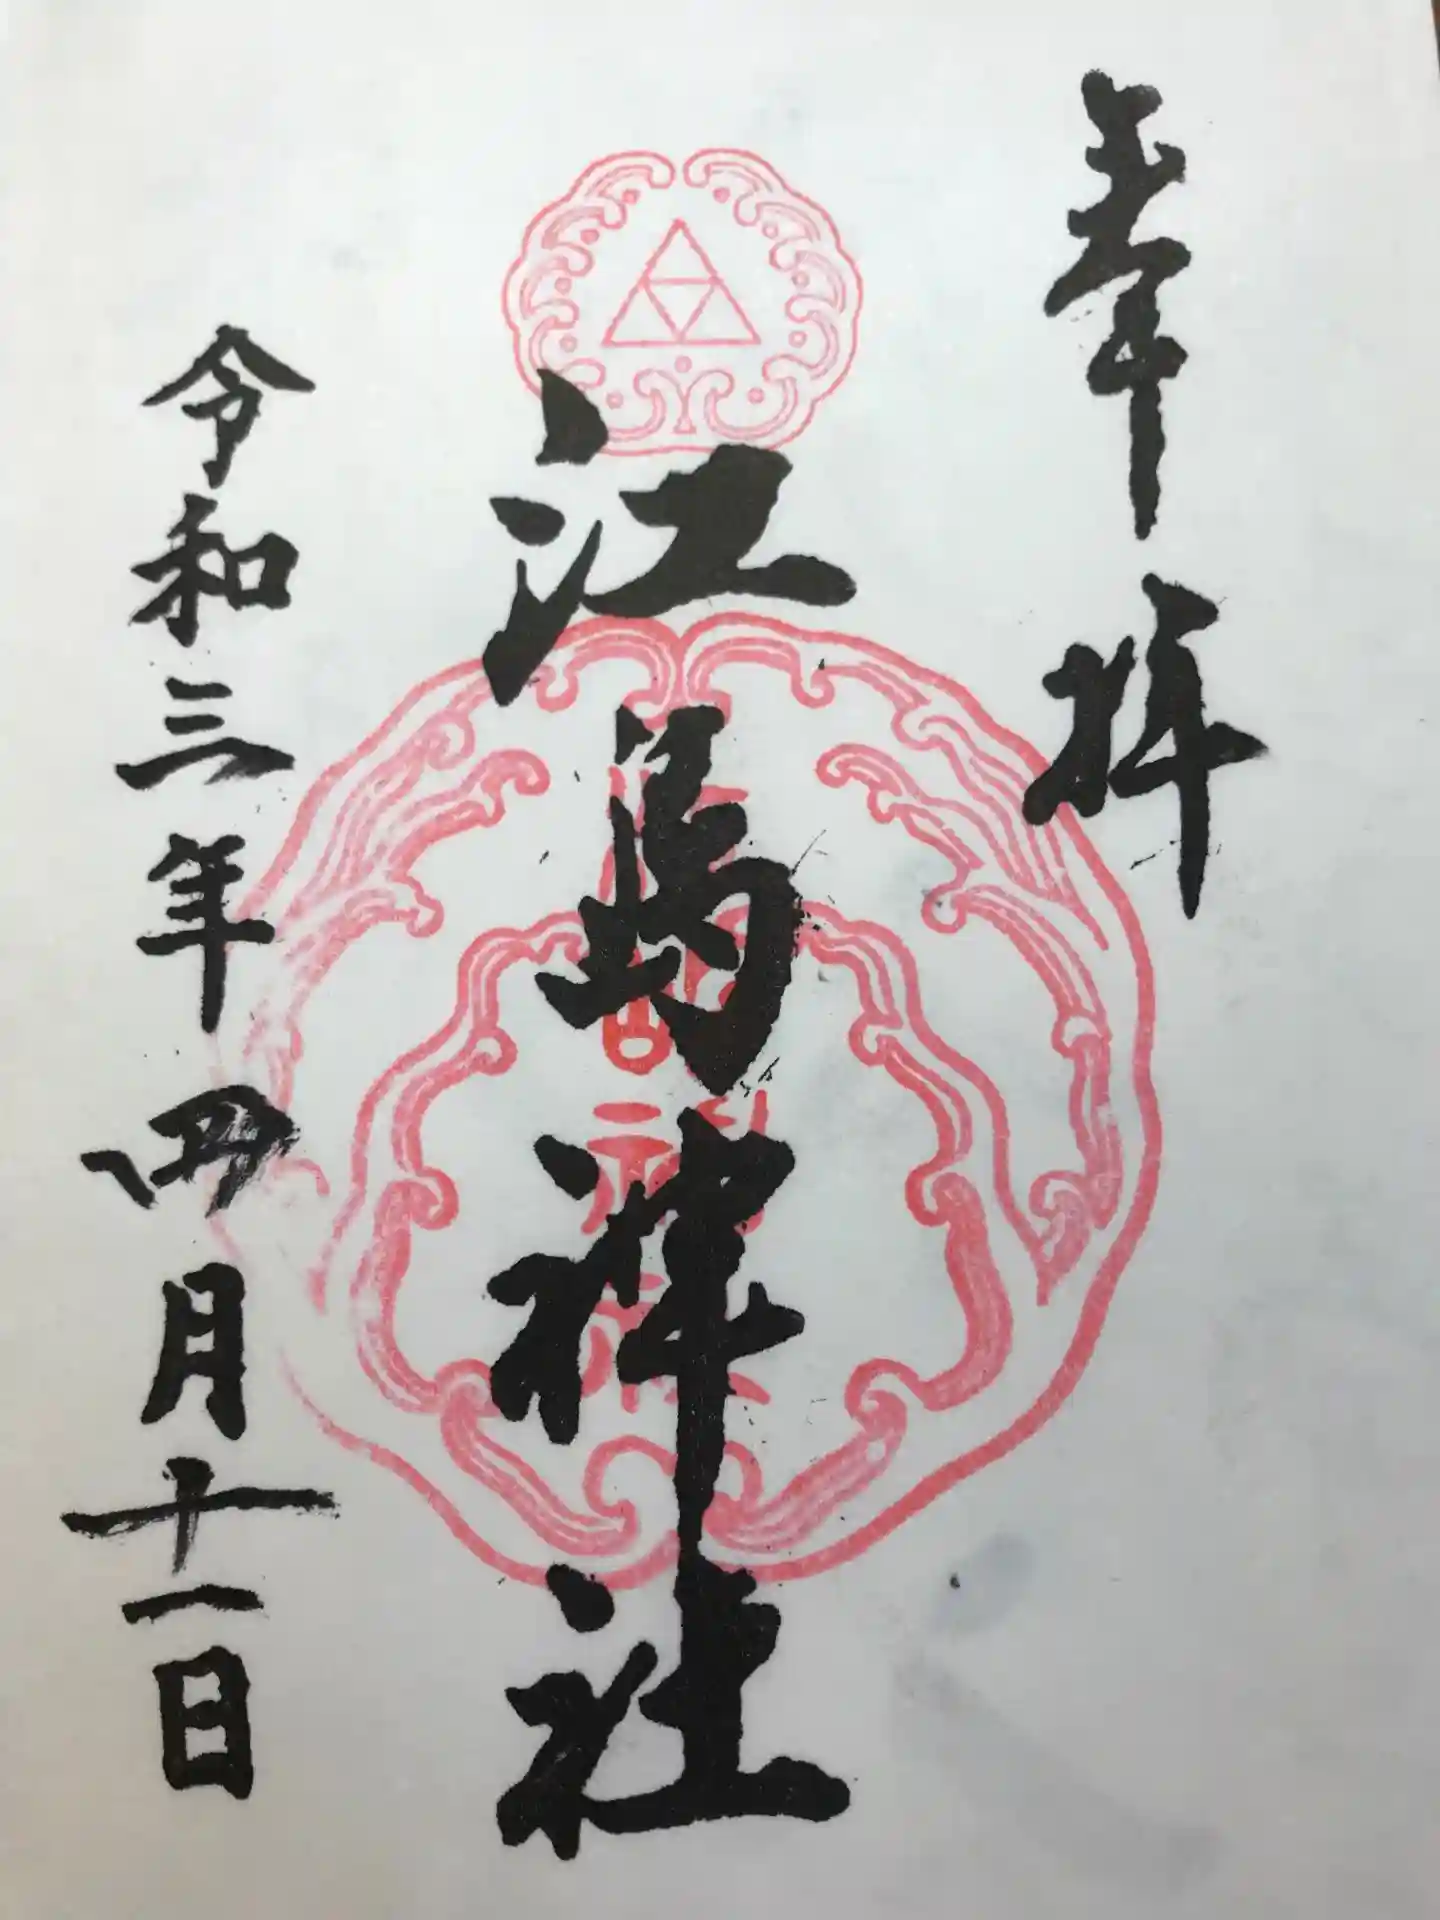 奉拝
江島神社
令和三年四月十一日